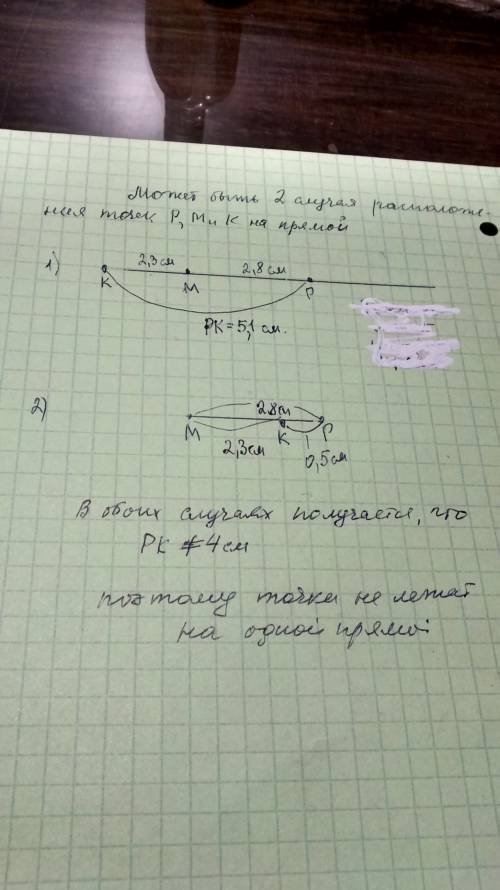 Может быть 2 случая расположе-
ния точек P, M и K на прямой
1)
2,3 см 2,8 см
K M P
PK = 5,1 см.
2)
2,8 см
M K P
2,3 см 0,5 см
В обоих случаях получается, что
PK ≠ 4 см
поэтому точки не лежат
на одной прямой